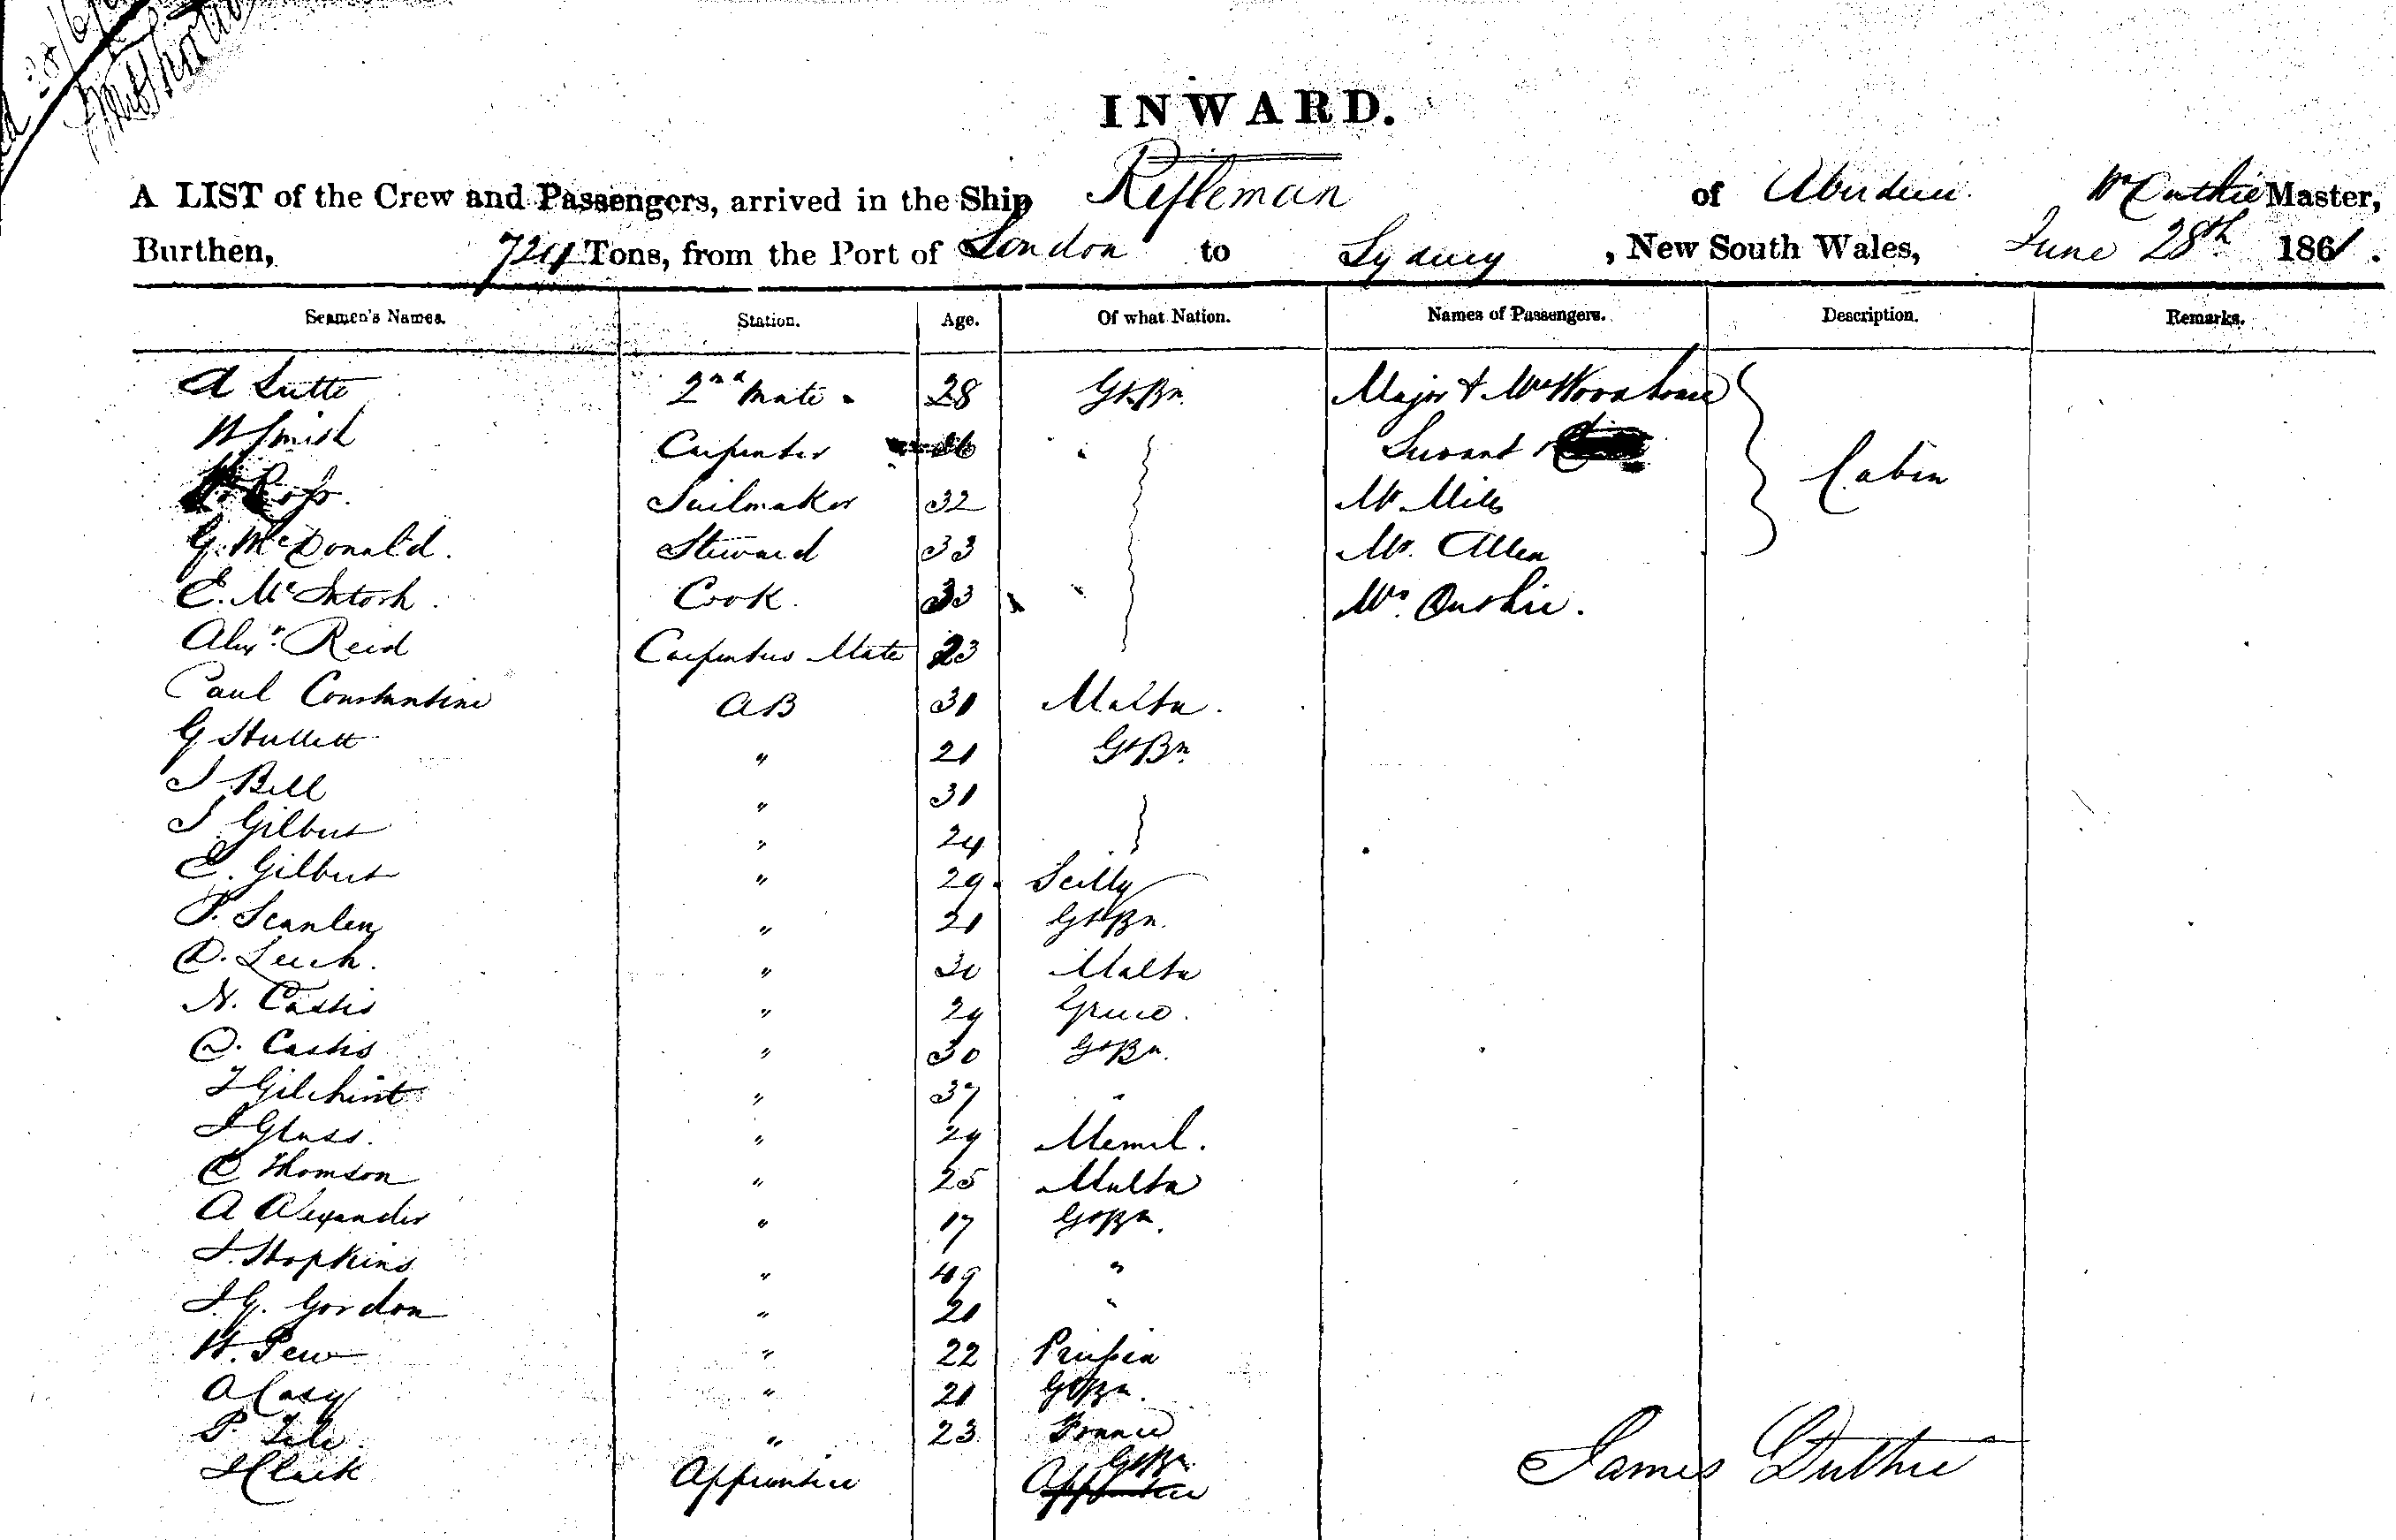 INWARD.
A LIST of the Crew and Passengers, arrived in the Ship Rifleman of Aberdeen Master,
Burthen, 724 Tons, from the Port of London to Sydney, New South Wales, June 28th 1861.
Seamen's Names. Station. Age. Of what Nation. Names of Passengers. Description. Remarks.
A 2nd Mate 28 Gt Bn Major &
W Smith Carpenter Servant
Ross. Sailmaker 32 Mr. Cabin
G. McDonald. Steward 33 Mr. Allen
E. McIntosh. Cook. 33
Alexr. Reid Carpenters Mate 23
Paul Constantine AB 31 Malta.
G Hullett " 21 Gt Bn.
J Bell " 31
J Gilbert " 24
E. Gilbert " 29 Scilly
P. Scanlen " 21 Gt Bn.
D. " 30 Malta
N. Castis " 29 Greece.
D. Castis " 30 Gt Bn.
J Gilchrist " 37 "
J Glass. " 29 Memel.
C Thomson " 25 Malta
A Alexander " 17 Gt Bn.
J. Hopkins " 49 "
J. G. Gordon " 21 "
W. Pew " 22 Prussia
A Casey " 21 Gt Bn.
P. " 23 France
J Clark Apprentice Gt Bn. Apprentice
James Duthie